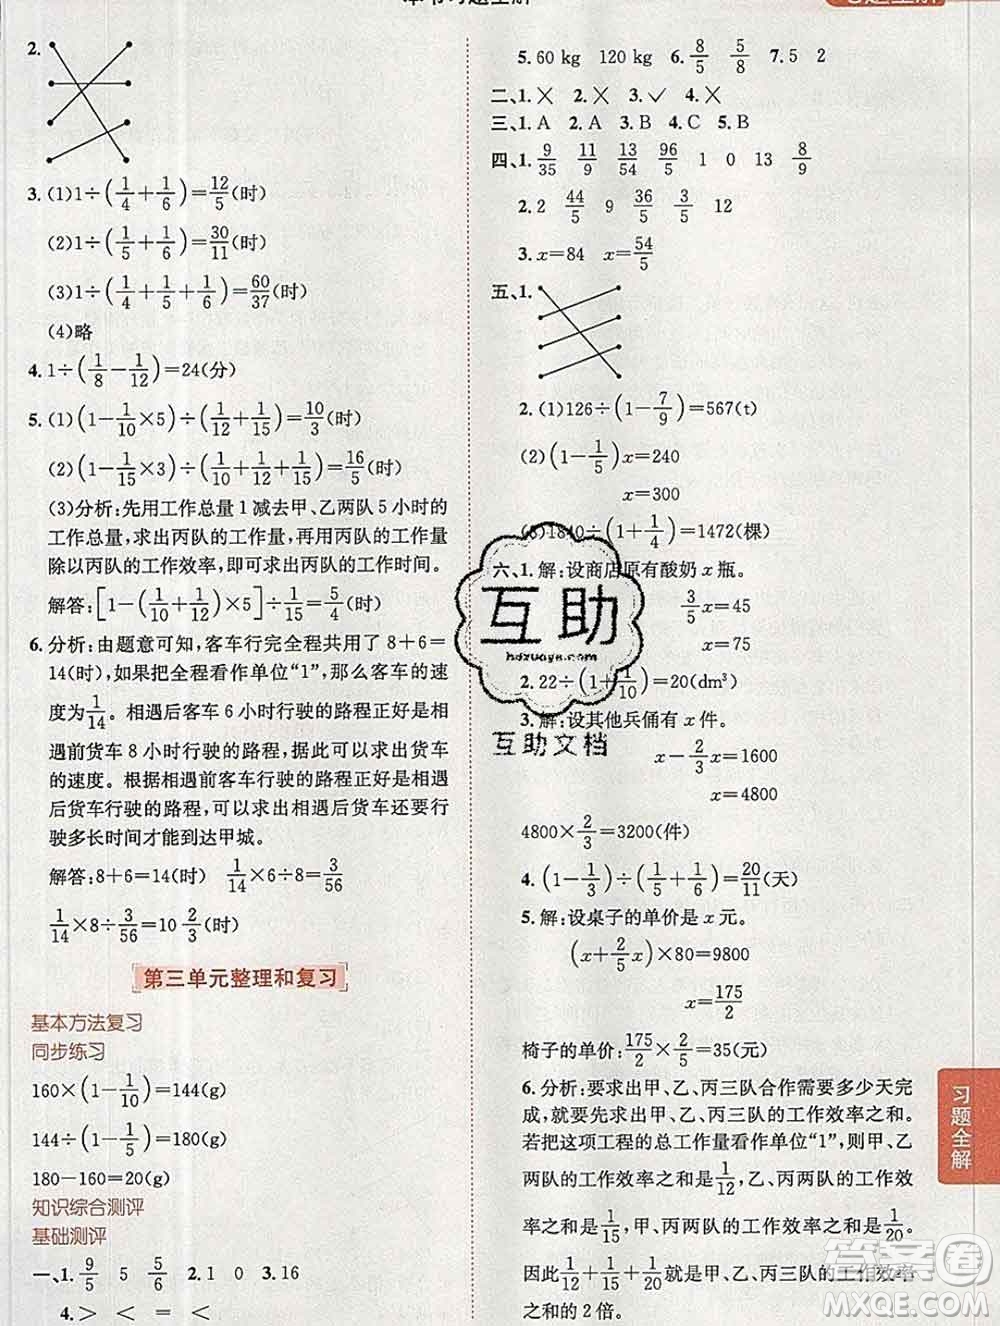 2.
3. (1)1÷(1/4+1/6)=12/5(时)
(2)1÷(1/5+1/6)=30/11(时)
(3)1÷(1/4+1/5+1/6)=60/37(时)
(4)略
4. 1÷(1/8-1/12)=24(分)
5. (1)(1-1/10×5)÷(1/12+1/15)=10/3(时)
(2)(1-1/15×3)÷(1/10+1/12+1/15)=16/5(时)
(3)分析:先用工作总量1减去甲、乙两队5小时的
工作总量,求出丙队的工作量,再用丙队的工作量
除以丙队的工作效率,即可求出丙队的工作时间。
解答:[1-(1/10+1/12)×5]÷1/15=5/4(时)
6. 分析:由题意可知,客车行完全程共用了8+6=
14(时),如果把全程看作单位“1”,那么客车的速
度为1/14。相遇后客车6小时行驶的路程正好是相
遇前货车8小时行驶的路程,据此可以求出货车
的速度。根据相遇前客车行驶的路程正好是相遇
后货车行驶的路程,可以求出相遇后货车还要行
驶多长时间才能到达甲城。
解答:8+6=14(时) 1/14×6÷8=3/56
1/14×8÷3/56=10 2/3(时)
第三单元整理和复习
基本方法复习
同步练习
160×(1-1/10)=144(g)
144÷(1-1/5)=180(g)
180-160=20(g)
知识综合测评
基础测评
一、1. 9/5 5 5/6 2. 1 0 3. 16
4. > < = <
5. 60 kg 120 kg 6. 8/5 5/8 7. 5 2
二、1. × 2. × 3. ✓ 4. ×
三、1. A 2. A 3. B 4. C 5. B
四、1. 9/35 11/9 13/54 96/5 1 0 13 8/9
2. 2 44/5 9 36/5 3/4 12
3. x=84 x=54/5
五、1.
2. (1)126÷(1-7/9)=567(t)
(2)(1-1/5)x=240
x=300
(3)1840÷(1+1/4)=1472(棵)
六、1. 解:设商店原有酸奶x瓶。
3/5x=45
x=75
2. 22÷(1+1/10)=20(dm³)
3. 解:设其他兵俑有x件。
x-2/3x=1600
x=4800
4800×2/3=3200(件)
4. (1-1/3)÷(1/5+1/6)=20/11(天)
5. 解:设桌子的单价是x元。
(x+2/5x)×80=9800
x=175/2
椅子的单价:175/2×2/5=35(元)
6. 分析:要求出甲、乙、丙三队合作需要多少天完
成,就要先求出甲、乙、丙三队的工作效率之和。
若把这项工程的总工作量看作单位“1”,则甲、乙
两队的工作效率之和是1/12,乙、丙两队的工作效
率之和是1/15,甲、丙两队的工作效率之和是1/20。
因此1/12+1/15+1/20是甲、乙、丙三队的工作效率
之和的2倍。
习题全解
互助
hdzuoye.com
互助文档
答案圈
MXQE.COM